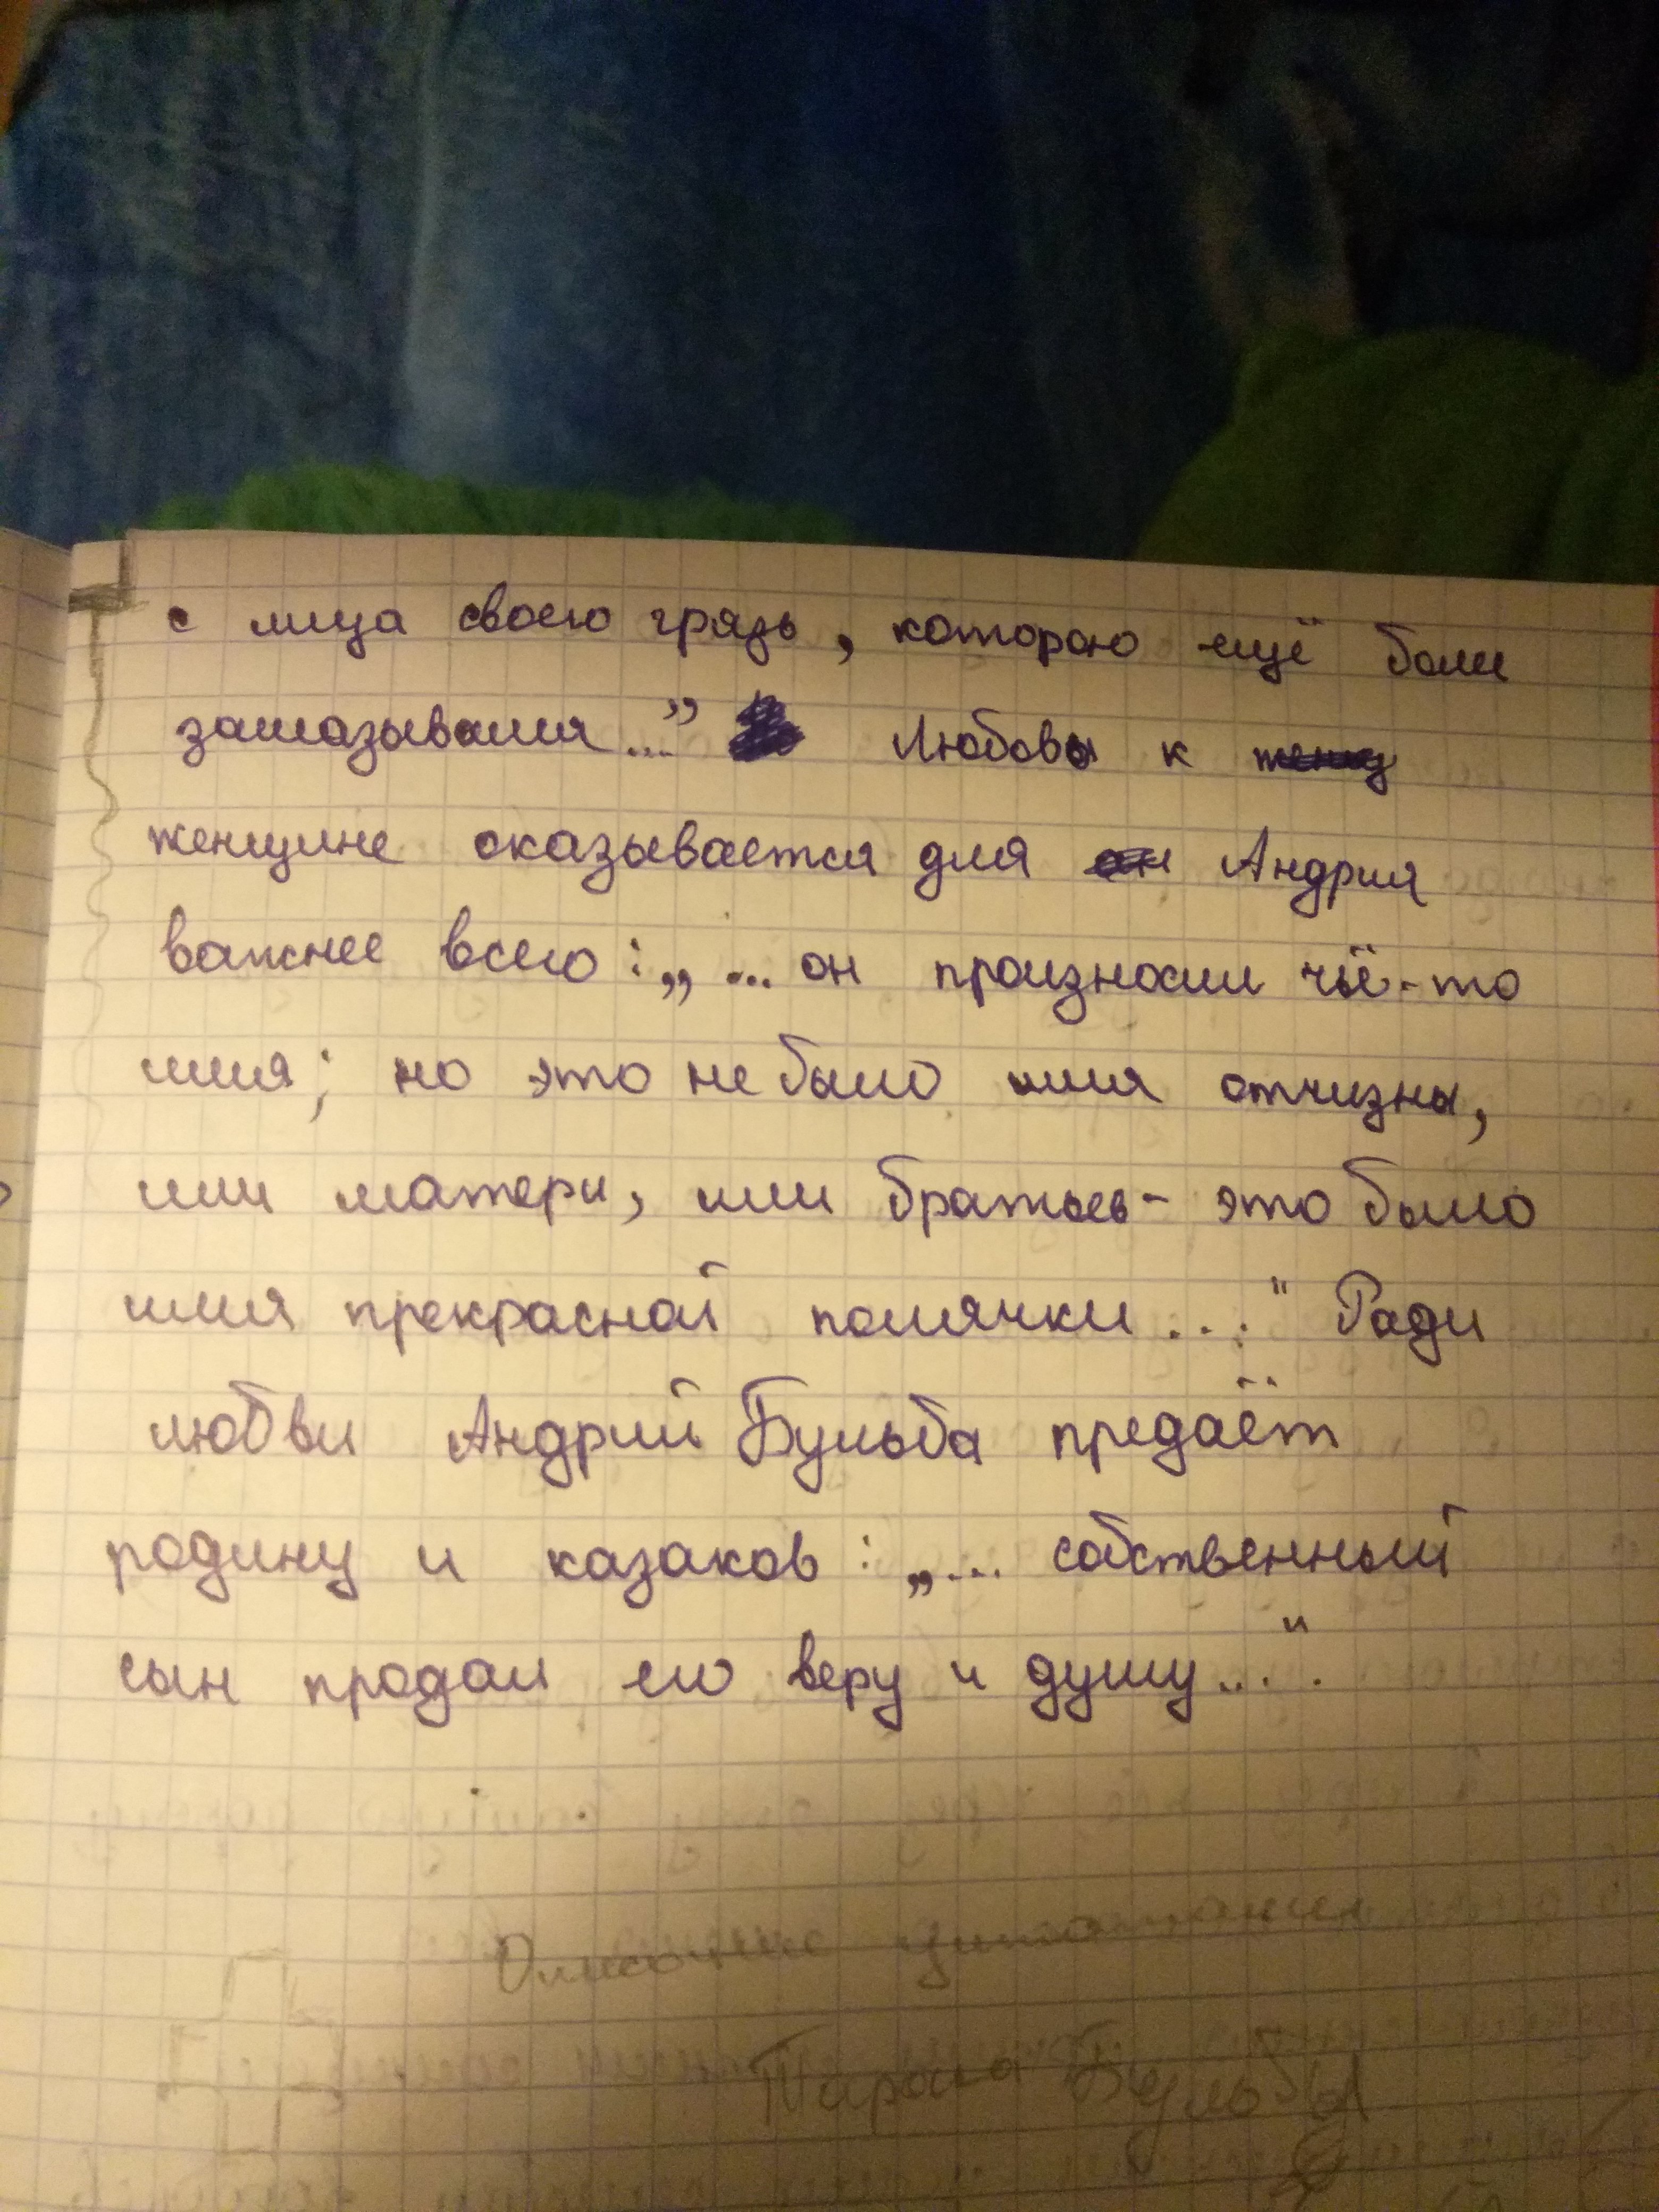 с лица своего грязь, которою ещё боли
замазывался..." Любовь к
женщине оказывается для Андрия
важнее всего: „... он произносил чьё-то
имя; но это не было имя отчизны,
или матери, или братьев- это было
имя прекрасной полячки..." Ради
любви Андрий Бульба предаёт
родину и казаков: „... собственный
сын продал его веру и душу...".
Описание
Тараса Бульбы